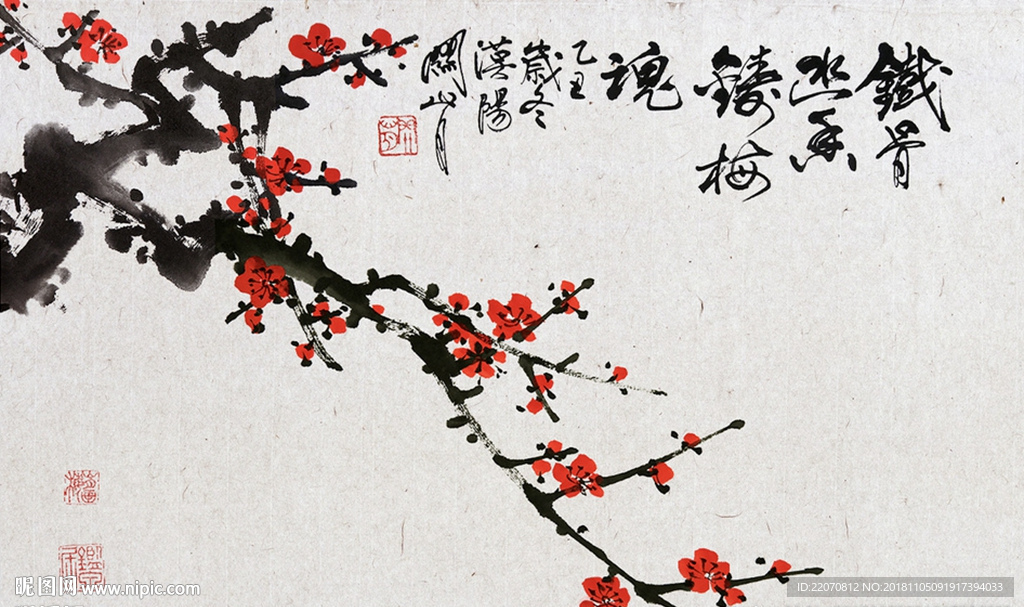 鐵骨
幽香
鑄梅
魂
乙丑
歲冬
漢陽
關山月
昵图网 www.nipic.com
ID:22070812 NO:20181105091917394033